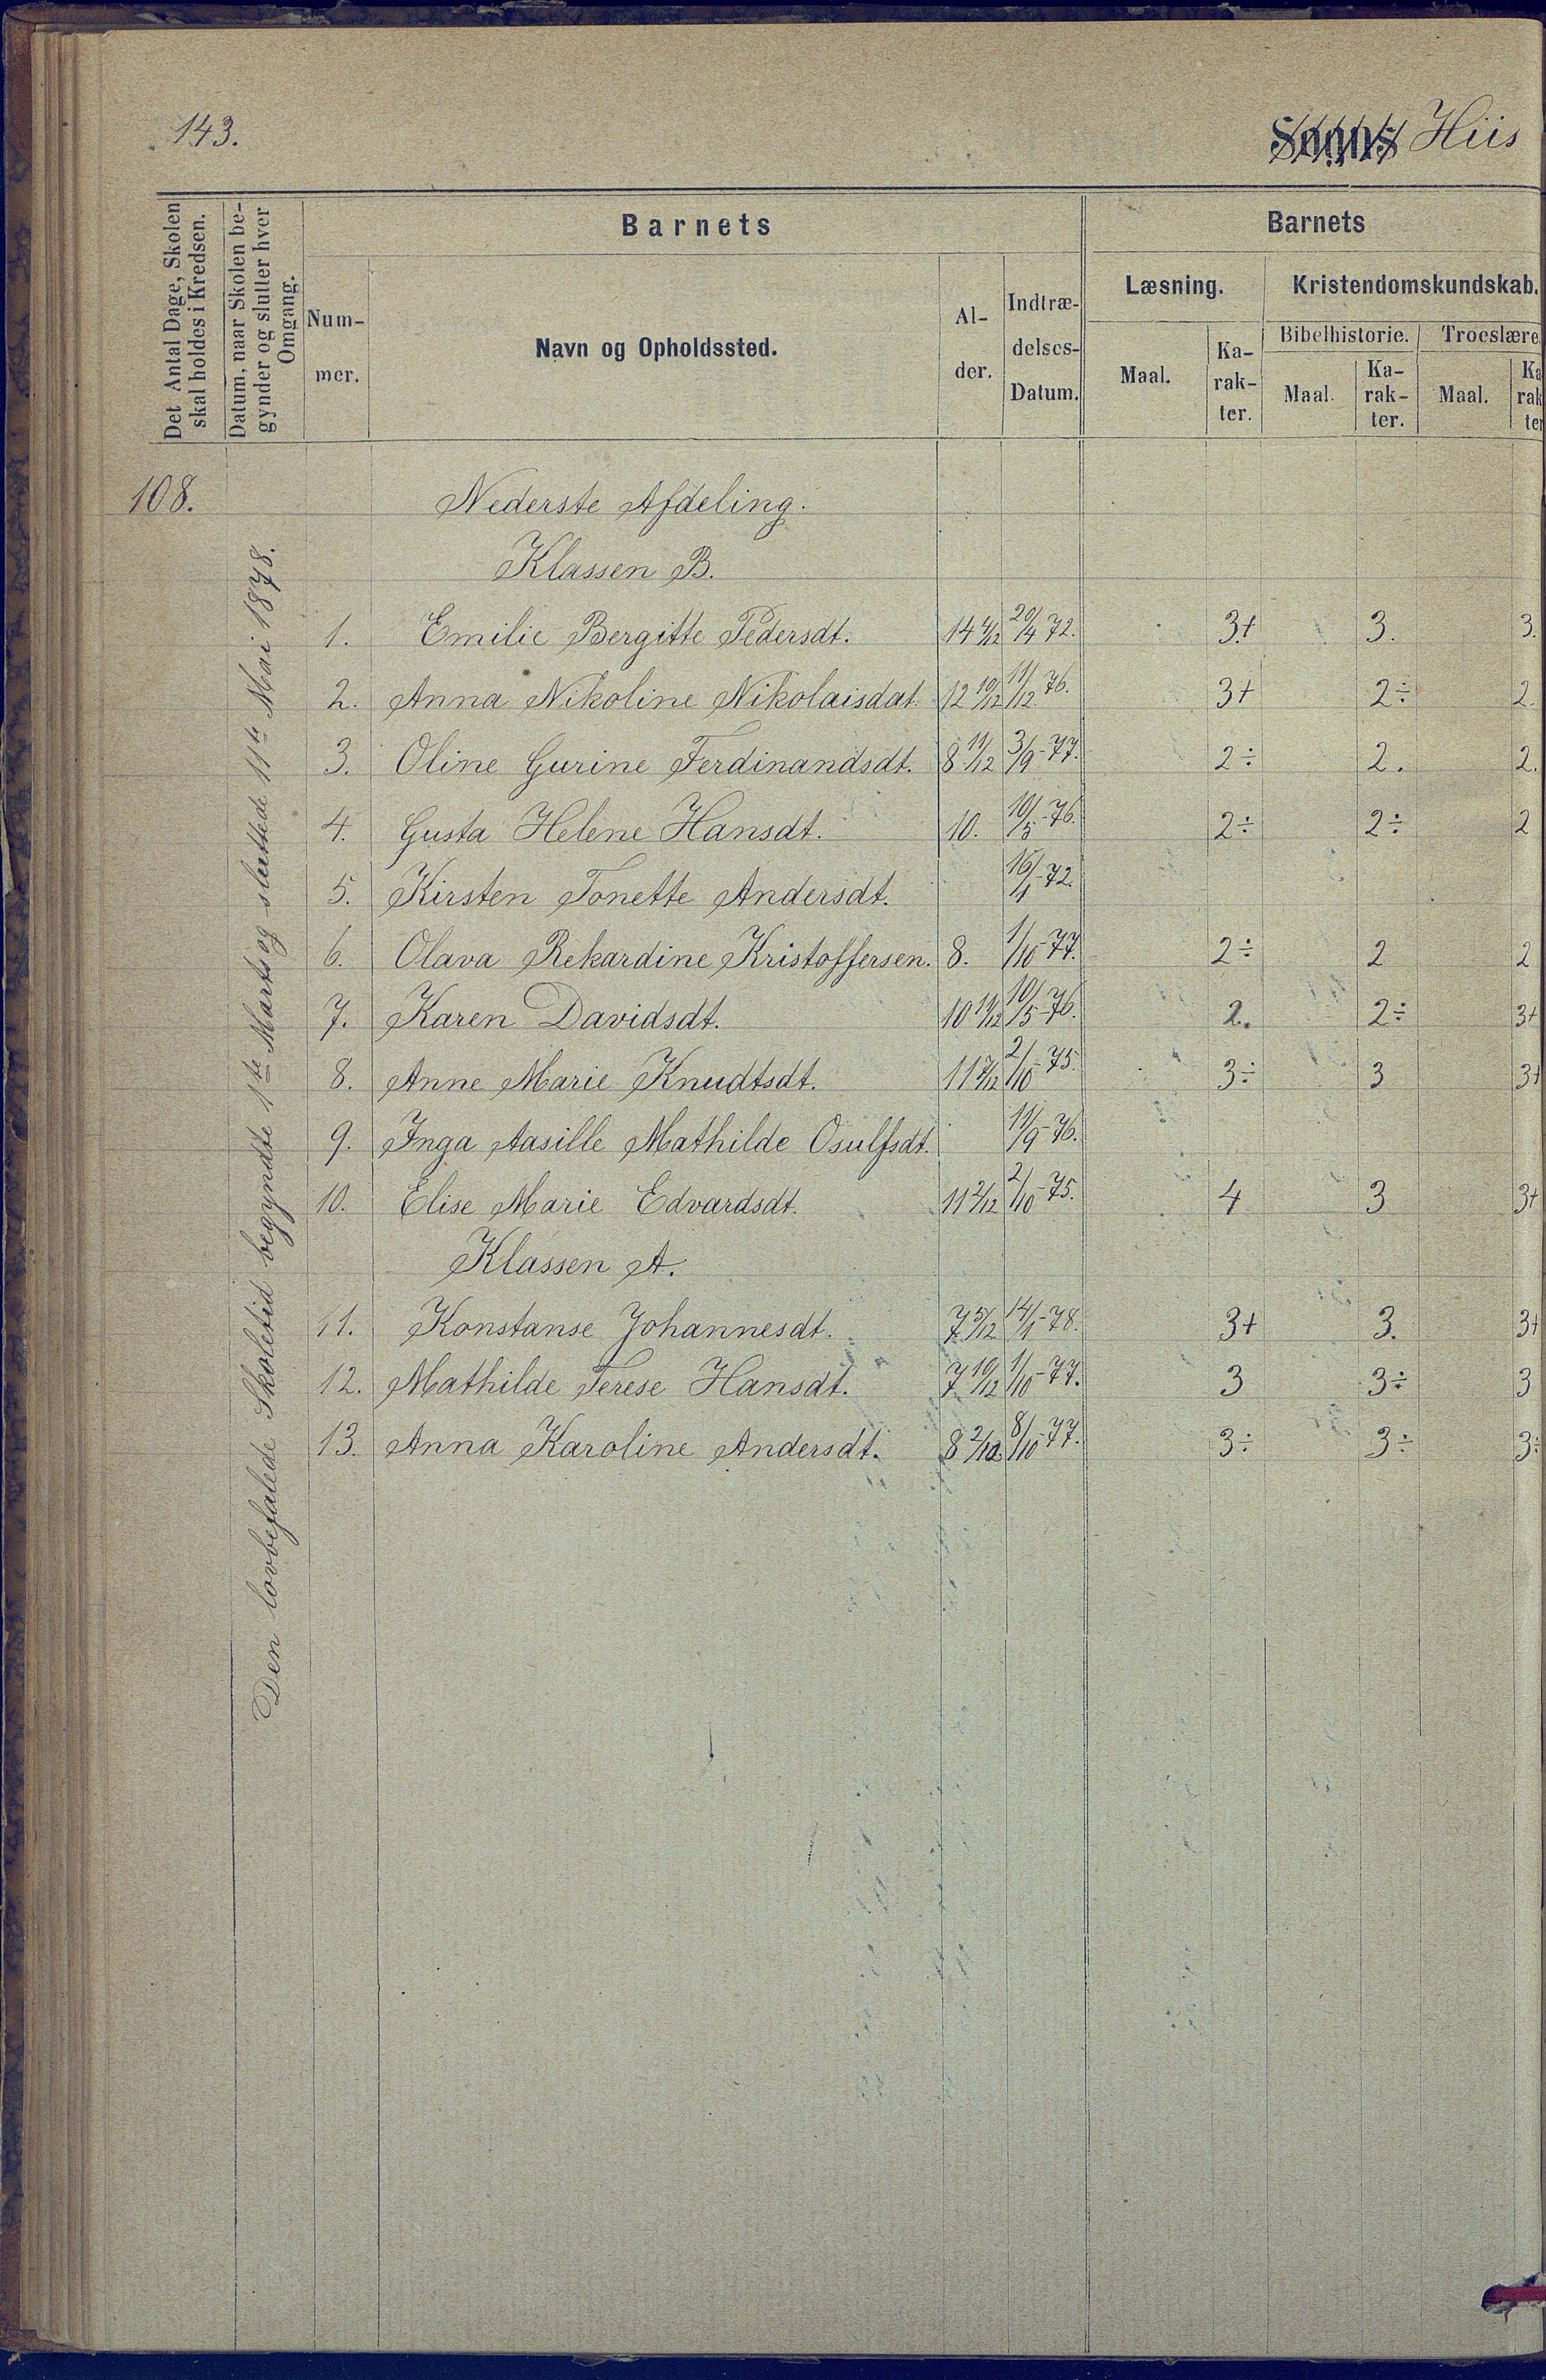 143.
Sogns Hiis
Det Antal Dage, Skolen
skal holdes i Kredsen.
Datum, naar Skolen be-
gynder og slutter hver
Omgang.
Barnets
Num-
mer.
Navn og Opholdssted.
Al-
der.
Indtræ-
delses-
Datum.
Barnets
Læsning.
Kristendomskundskab.
Maal.
Ka-
rak-
ter.
Bibelhistorie.
Troeslære
Maal.
Ka-
rak-
ter.
Maal.
Ka
rak
ter
108.
Den lovbefalede Skoletid begyndte 1te Marts og sluttede 11te Mai 1878.
Nederste Afdeling.
Klassen B.
1. Emilie Bergitte Pedersdt. 14 4/12 20/4 72. 3+ 3. 3.
2. Anna Nikoline Nikolaisdat. 12 10/12 11/12 76. 3+ 2÷ 2.
3. Oline Gurine Ferdinandsdt. 8 11/12 3/9-77. 2÷ 2. 2.
4. Gusta Helene Hansdt. 10. 10/5-76. 2÷ 2÷ 2
5. Kirsten Tonette Andersdt. 16/1-72.
6. Olava Rekardine Kristoffersen. 8. 1/10-77. 2÷ 2 2
7. Karen Davidsdt. 10 11/12 10/5-76. 2. 2÷ 3+
8. Anne Marie Knudtsdt. 11 7/12 2/10-75. 3÷ 3 3+
9. Inga Aasille Mathilde Osulfsdt. 11/9-76.
10. Elise Marie Edvardsdt. 11 2/12 2/10-75. 4 3 3+
Klassen A.
11. Konstanse Johannesdt. 7 5/12 14/1-78. 3+ 3. 3+
12. Mathilde Terese Hansdt. 7 10/12 1/10-77. 3 3÷ 3
13. Anna Karoline Andersdt. 8 2/12 8/10-77. 3÷ 3÷ 3÷